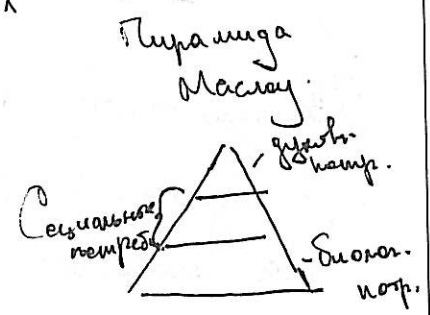 Пирамида
Маслоу.
духовн.
потр.
Социальные
потребн.
-биолог.
потр.